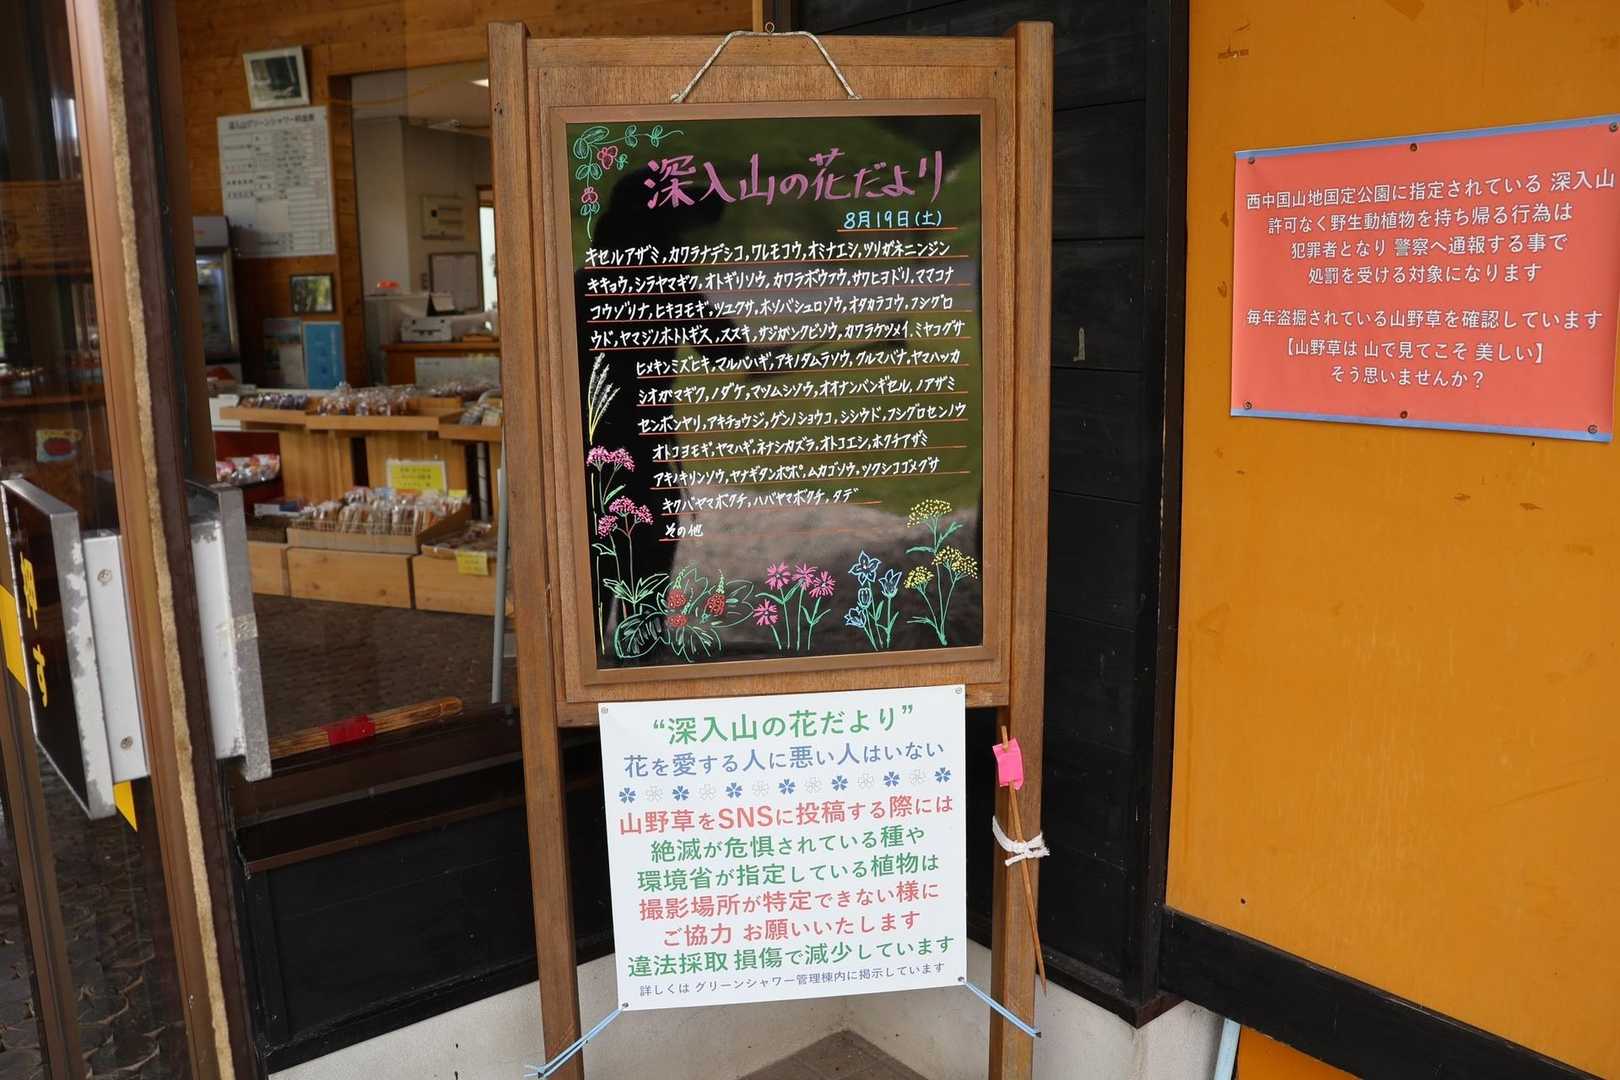 深入山グリーンシャワー料金表
深入山の花だより
8月19日(土)
キセルアザミ,カワラナデシコ,ワレモコウ,オミナエシ,ツリガネニンジン
キキョウ,シラヤマギク,オトギリソウ,カワラボウフウ,サワヒヨドリ,ママコナ
コウゾリナ,ヒキヨモギ,ツユクサ,ホソバシュロソウ,オタカラコウ,フシグロ
ウド,ヤマジノホトトギス,ススキ,サジガンクビソウ,カワラケツメイ,ミヤコグサ
ヒメキンミズヒキ,マルバハギ,アキノタムラソウ,クルマバナ,ヤマハッカ
シオガマギク,ノダケ,マツムシソウ,オオナンバンギセル,ノアザミ
センボンヤリ,アキチョウジ,ゲンノショウコ,シシウド,フシグロセンノウ
オトコヨモギ,ヤマハギ,ネナシカズラ,オトコエシ,ホクチアザミ
アキノキリンソウ,ヤナギタンポポ,ムカゴソウ,ツクシコゴメグサ
キクバヤマボクチ,ハバヤマボクチ,タデ
その他
“深入山の花だより”
花を愛する人に悪い人はいない
山野草をSNSに投稿する際には
絶滅が危惧されている種や
環境省が指定している植物は
撮影場所が特定できない様に
ご協力 お願いいたします
違法採取 損傷で減少しています
詳しくは グリーンシャワー管理棟内に掲示しています
西中国山地国定公園に指定されている 深入山
許可なく野生動植物を持ち帰る行為は
犯罪者となり 警察へ通報する事で
処罰を受ける対象になります
毎年盗掘されている山野草を確認しています
【山野草は 山で見てこそ 美しい】
そう思いませんか？